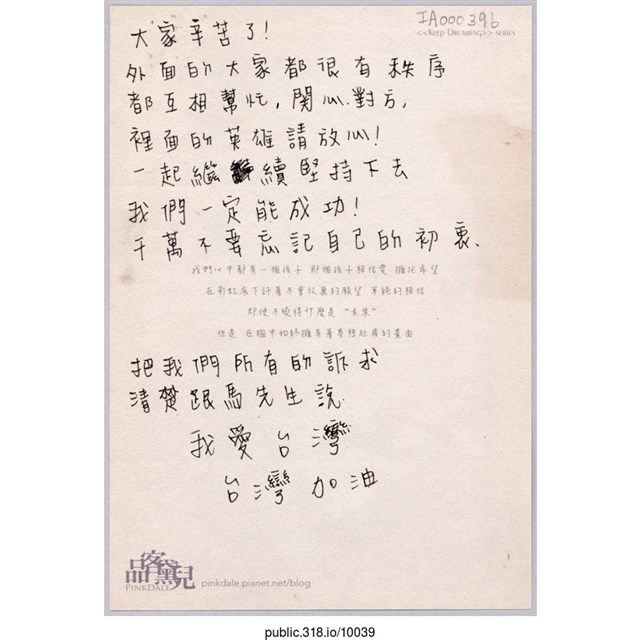 IA000396
<<KEEP DREAMING>> SERIES
大家辛苦了!
外面的大家都很有秩序
都互相幫忙,關心對方,
裡面的英雄請放心!
一起繼續堅持下去
我們一定能成功!
千萬不要忘記自己的初衷、
我們心中都有一個孩子 那個孩子相信愛 擁抱希望
在彩虹底下許著不會放棄的願望 單純的相信
即使不曉得什麼是 "未來"
但是 在腦中始終擁有著夢想起飛的畫面
把我們所有的訴求
清楚跟馬先生說.
我愛台灣
台灣加油
品客黛兒
PINKDALE
pinkdale.pixnet.net/blog
public.318.io/10039